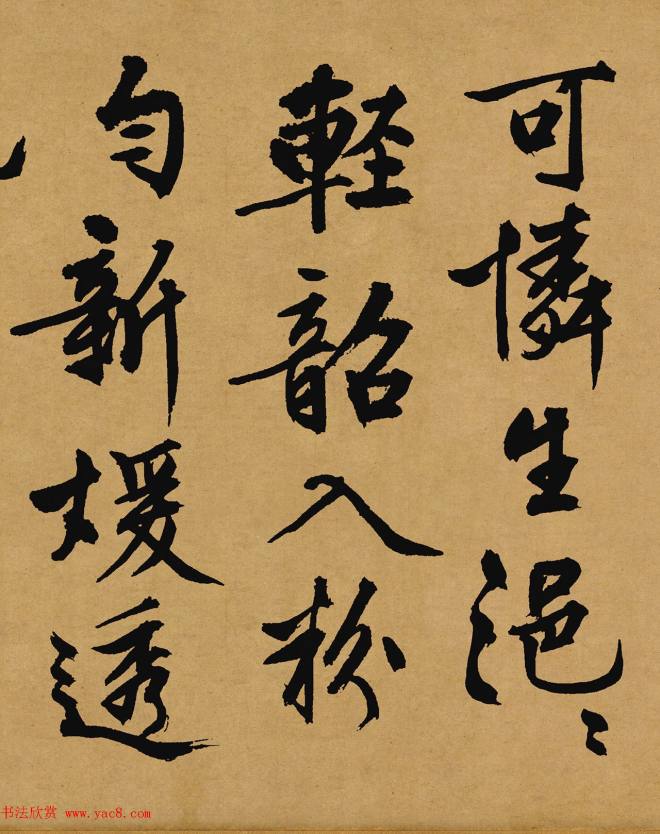 可憐生浥〻
輕韶入粉
勻新煖透
书法欣赏 www.yac8.com